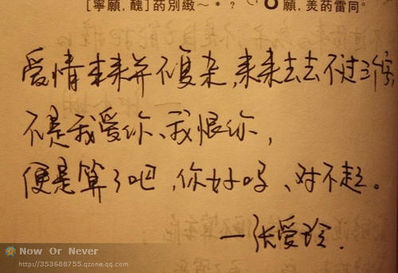 [寧願．醜]葯別緻～*? 願．羙葯雷同。
爱情本来并不复杂，来来去去不过三个字，
不是我爱你、我恨你，
便是算了吧，你好吗、对不起。
—张爱玲．
Now Or Never
http://353688755.qzone.qq.com